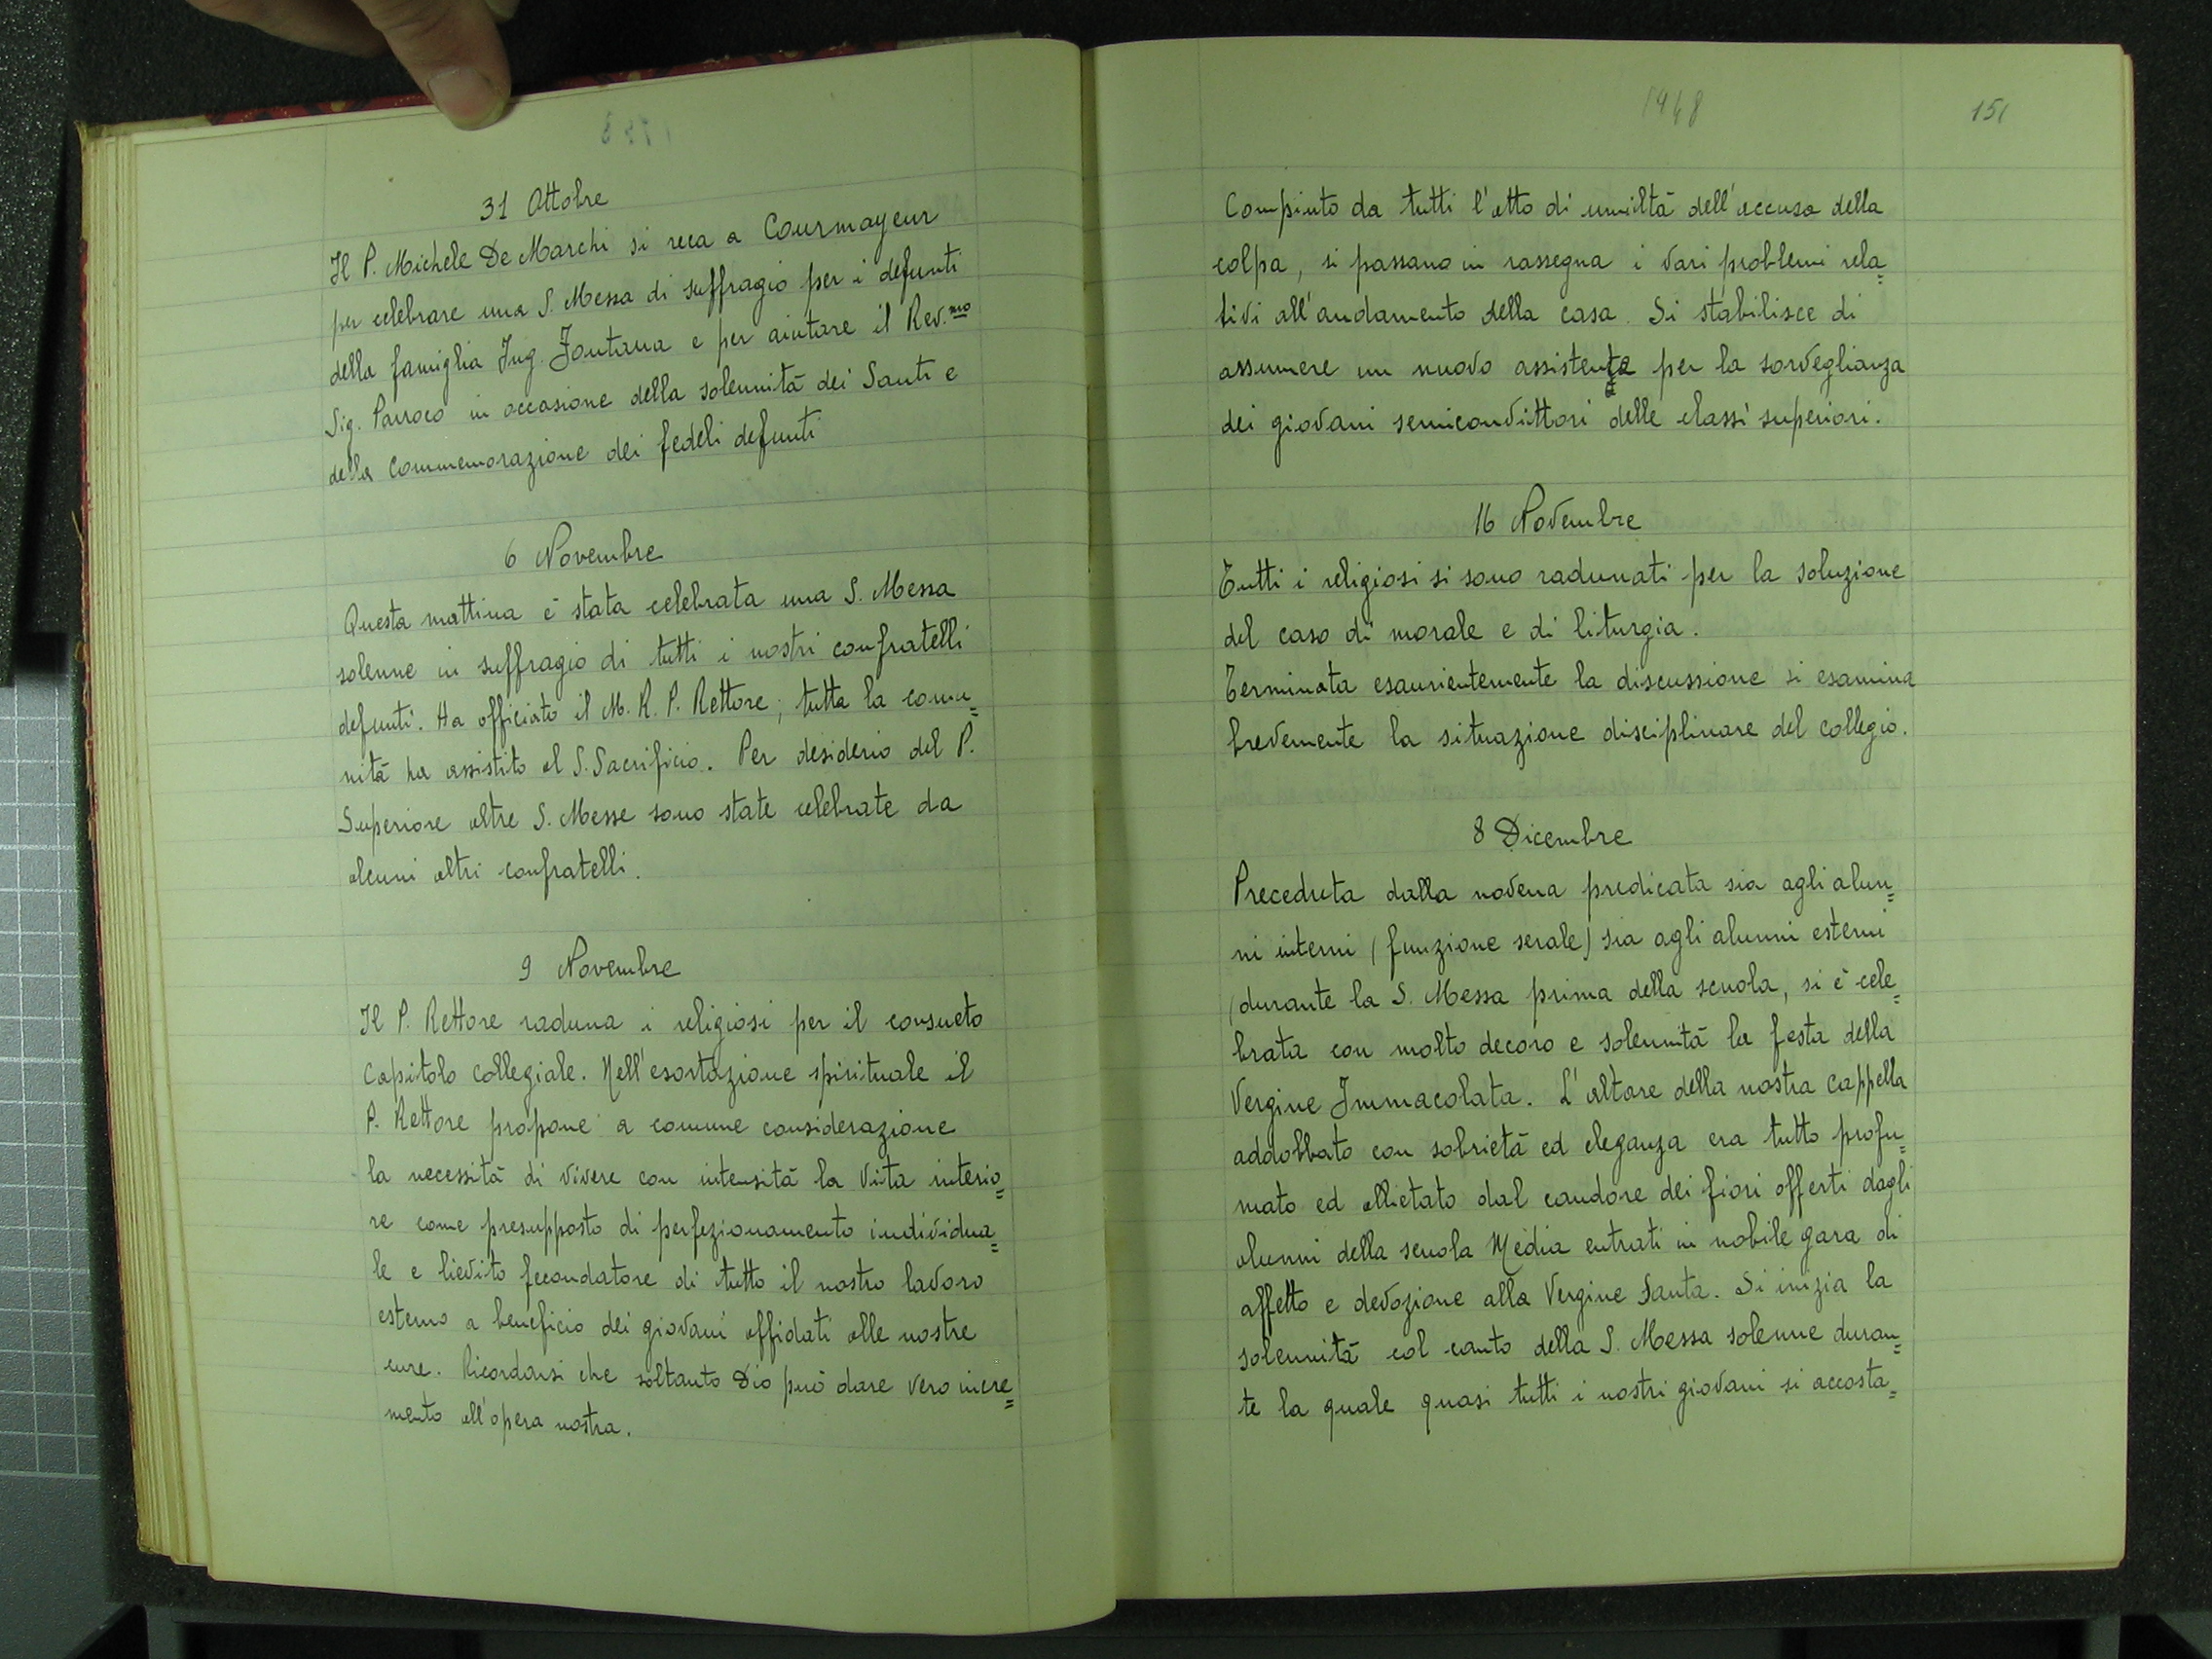 31 Ottobre
Il P. Michele De Marchi si reca a Courmayeur
per celebrare una S. Messa di suffragio per i defunti
della famiglia Ing. Fontana e per aiutare il Rev.mo
Sig. Parroco in occasione della solennità dei Santi e
della Commemorazione dei fedeli defunti
6 Novembre
Questa mattina è stata celebrata una S. Messa
solenne in suffragio di tutti i nostri confratelli
defunti. Ha officiato il M. R. P. Rettore; tutta la comu=
nità ha assistito al S. Sacrificio. Per desiderio del P.
Superiore altre S. Messe sono state celebrate da
alcuni altri confratelli.
9 Novembre
Il P. Rettore raduna i religiosi per il consueto
Capitolo Collegiale. Nell'esortazione spirituale il
P. Rettore propone a comune considerazione
la necessità di vivere con intensità la vita interio=
re come presupposto di perfezionamento individua=
le e lievito fecondatore di tutto il nostro lavoro
esterno a beneficio dei giovani affidati alle nostre
cure. Ricordarsi che soltanto Dio può dare vero incre=
mento all'opera nostra.
1948
151
Compiuto da tutti l'atto di umiltà dell'accusa della
colpa, si passano in rassegna i vari problemi rela=
tivi all'andamento della casa. Si stabilisce di
assumere un nuovo assistente per la sorveglianza
dei giovani semiconvittori delle classi superiori.
16 Novembre
Tutti i religiosi si sono radunati per la soluzione
del caso di morale e di liturgia.
Terminata esaurientemente la discussione si esamina
brevemente la situazione disciplinare del collegio.
8 Dicembre
Preceduta dalla novena predicata sia agli alun=
ni interni (funzione serale) sia agli alunni esterni
(durante la S. Messa prima della scuola, si è cele=
brata con molto decoro e solennità la festa della
Vergine Immacolata. L'altare della nostra cappella
addobbato con sobrietà ed eleganza era tutto profu=
mato ed allietato dal candore dei fiori offerti dagli
alunni della scuola Media entrati in nobile gara di
affetto e devozione alla Vergine Santa. Si inizia la
solennità col canto della S. Messa solenne duran=
te la quale quasi tutti i nostri giovani si accosta=